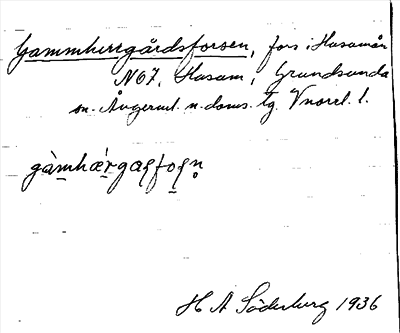 Gammherrgårdsforsen, fors i Husumån
N 67, Husum, Grundsunda
sn. Ångerml. n. doms. tg. Vnorrl. l.
gàmhær̀gaʂfoʂn̥
H A Söderberg 1936